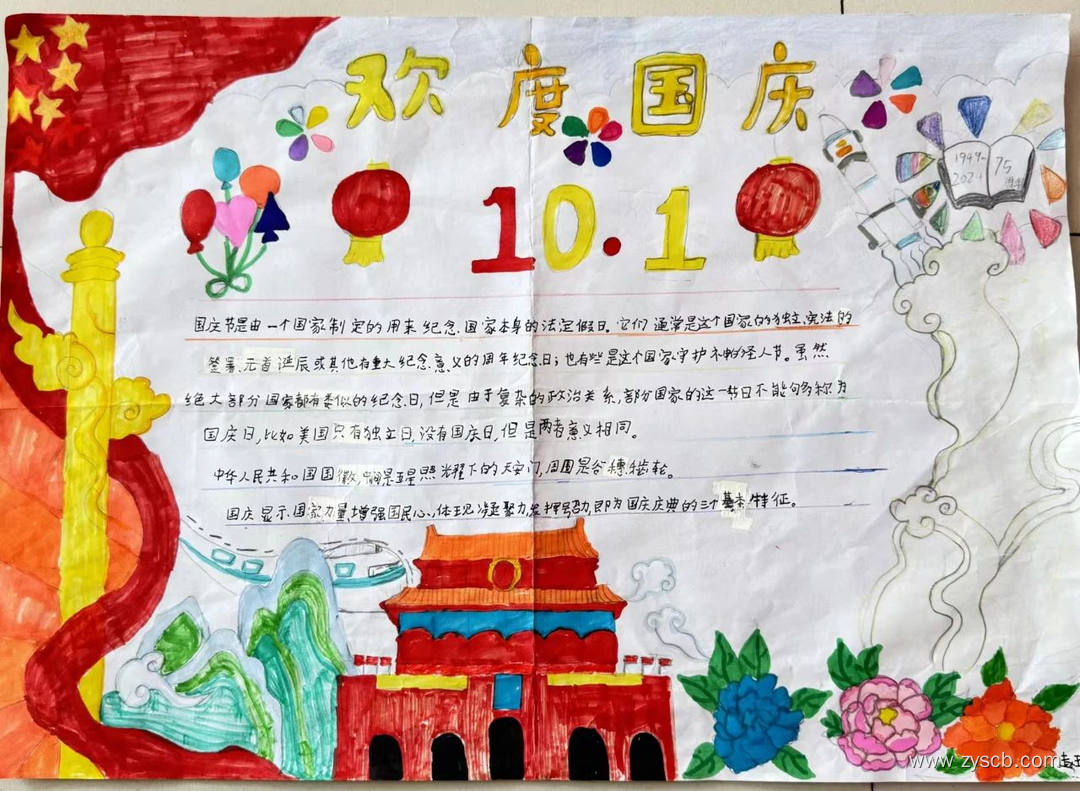 欢度国庆
10·1
1949-
2024
75
周年
国庆节是由一个国家制定的用来纪念国家本身的法定假日。它们通常是这个国家的独立、宪法的
签署、元首诞辰或其他有重大纪念意义的周年纪念日；也有些是这个国家守护神的圣人节。虽然
绝大部分国家都有类似的纪念日，但是由于复杂的政治关系，部分国家的这一节日不能够称为
国庆日，比如美国只有独立日，没有国庆日，但是两者意义相同。
中华人民共和国国徽，中间是五星照耀下的天安门，周围是谷穗和齿轮。
国庆显示国家力量、增强国民心、体现凝聚力、发挥号召力，即为国庆庆典的三个基本特征。
www.zyscb.com